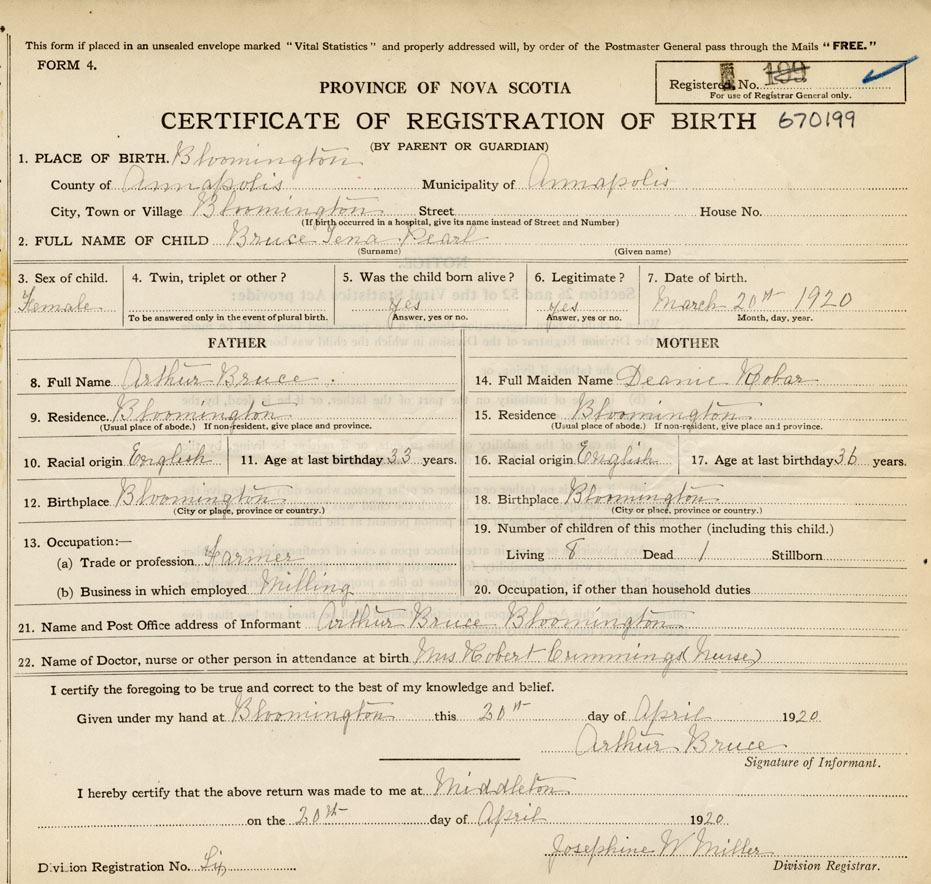 This form if placed in an unsealed envelope marked "Vital Statistics" and properly addressed will, by order of the Postmaster General pass through the Mails "FREE."
FORM 4.
Registered No. 199
For use of Registrar General only.
PROVINCE OF NOVA SCOTIA
CERTIFICATE OF REGISTRATION OF BIRTH 670199
(BY PARENT OR GUARDIAN)
1. PLACE OF BIRTH. Bloomington
County of Annapolis Municipality of Annapolis
City, Town or Village Bloomington Street House No.
(If birth occurred in a hospital, give its name instead of Street and Number)
2. FULL NAME OF CHILD Bruce Tena Pearl
(Surname) (Given name)
3. Sex of child. 4. Twin, triplet or other? 5. Was the child born alive? 6. Legitimate? 7. Date of birth.
Female yes yes March 20th 1920
To be answered only in the event of plural birth. Answer, yes or no. Answer, yes or no. Month, day, year.
FATHER MOTHER
8. Full Name Arthur Bruce 14. Full Maiden Name Robar
9. Residence. Bloomington 15. Residence Bloomington
(Usual place of abode.) If non-resident, give place and province. (Usual place of abode.) If non-resident, give place and province.
10. Racial origin English 11. Age at last birthday 33 years. 16. Racial origin English 17. Age at last birthday 36 years.
12. Birthplace Bloomington 18. Birthplace Bloomington
(City or place, province or country.) (City or place, province or country.)
19. Number of children of this mother (including this child.)
13. Occupation:—
Living 8 Dead 1 Stillborn
(a) Trade or profession. Farmer
(b) Business in which employed. Milling 20. Occupation, if other than household duties
21. Name and Post Office address of Informant Arthur Bruce Bloomington
22. Name of Doctor, nurse or other person in attendance at birth Mrs Robert Crummings (Nurse)
I certify the foregoing to be true and correct to the best of my knowledge and belief.
Given under my hand at Bloomington this 20th day of April 1920.
Arthur Bruce
Signature of Informant.
I hereby certify that the above return was made to me at Middleton
on the 20th day of April 1920.
Josephine W Miller
Division Registration No. Six Division Registrar.